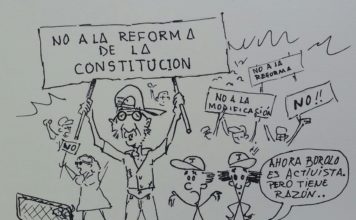 NO A LA REFORMA
DE LA
CONSTITUCION
NO A LA
REFORMA
NO A LA
MODIFICACIÓN
NO!!
NO
AHORA BOROLO
ES ACTIVISTA.
PERO TIENE
RAZÓN..